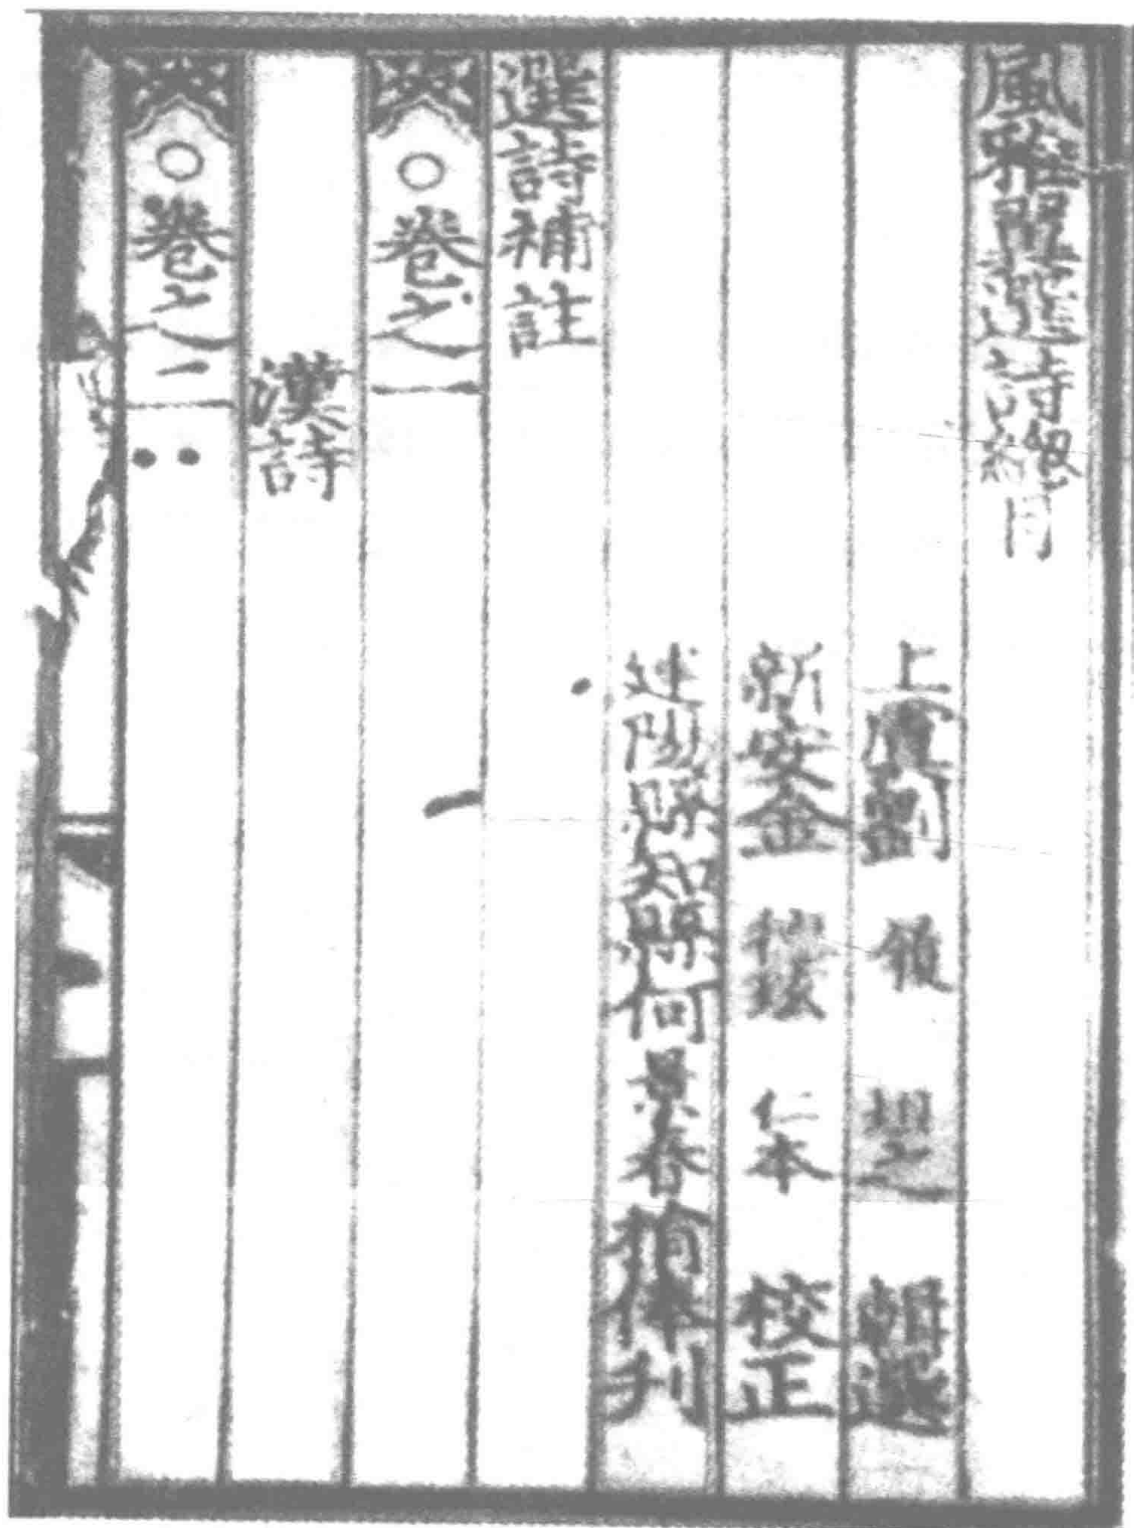 風雅翼選詩總目
上虞劉 履 坦之 輯選
新安金 德玹 仁本 校正
建陽縣知縣何景春捐俸刊
選詩補註
○卷之一
漢詩
○卷之二